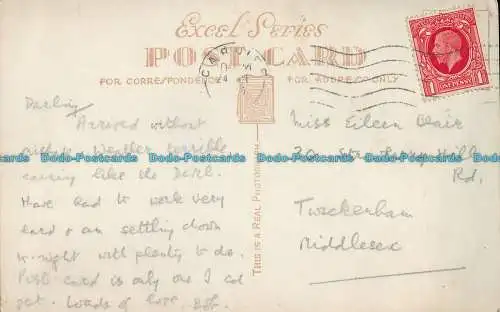 Excel Series
POST CARD
FOR CORRESPONDENCE
FOR ADDRESS ONLY
CARDIFF
THIS IS A REAL PHOTOGRAPH
1 ONE PENNY 1
Darling
Arrived without
Weather terrible
raining like the Devil.
Have had to work very
hard & am settling down
to-night with plenty to do.
Post card is only one I cd
get. Loads of love.
Miss Eileen Blair
30 Hill
Rd,
Twickenham
Middlesex
Dodo-Postcards Dodo-Postcards Dodo-Postcards Dodo-Postcards Dodo-Postcards Dodo-Postcards